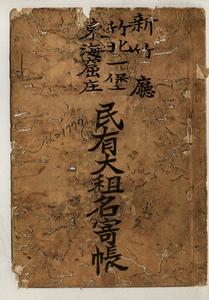 新竹廳
竹北一堡
東海窟庄
民有大租名寄帳